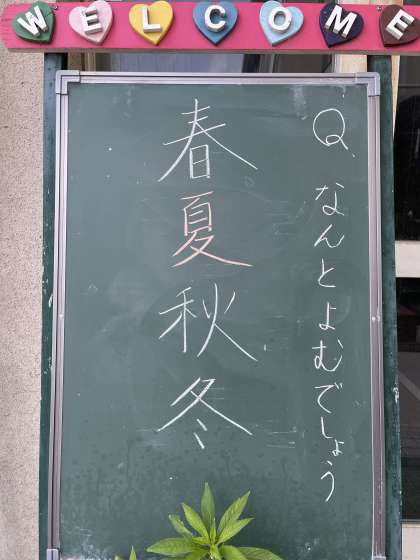 WELCOME
Q.なんとよむでしょう
春夏秋冬